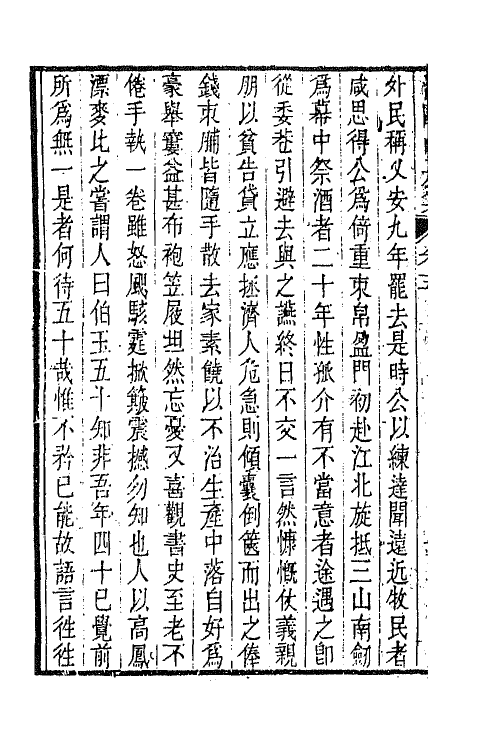 外民稱乂安九年罷去是時公以練達聞遠近牧民者
咸思得公爲倚重束帛盈門初赴江北旋抵三山南劒
爲幕中祭酒者二十年性孤介有不當意者途遇之卽
從委巷引避去與之讌終日不交一言然慷慨仗義親
朋以貧告貸立應拯濟人危急則傾囊倒篋而出之俸
錢束脯皆隨手散去家素饒以不治生產中落自好爲
豪舉窶益甚布袍笠屐坦然忘憂又喜觀書史至老不
倦手執一卷雖怒颶駭霆掀簸震撼勿知也人以高鳳
漂麥比之嘗謂人曰伯玉五十知非吾年四十已覺前
所爲無一是者何待五十哉惟不矜已能故語言徃徃